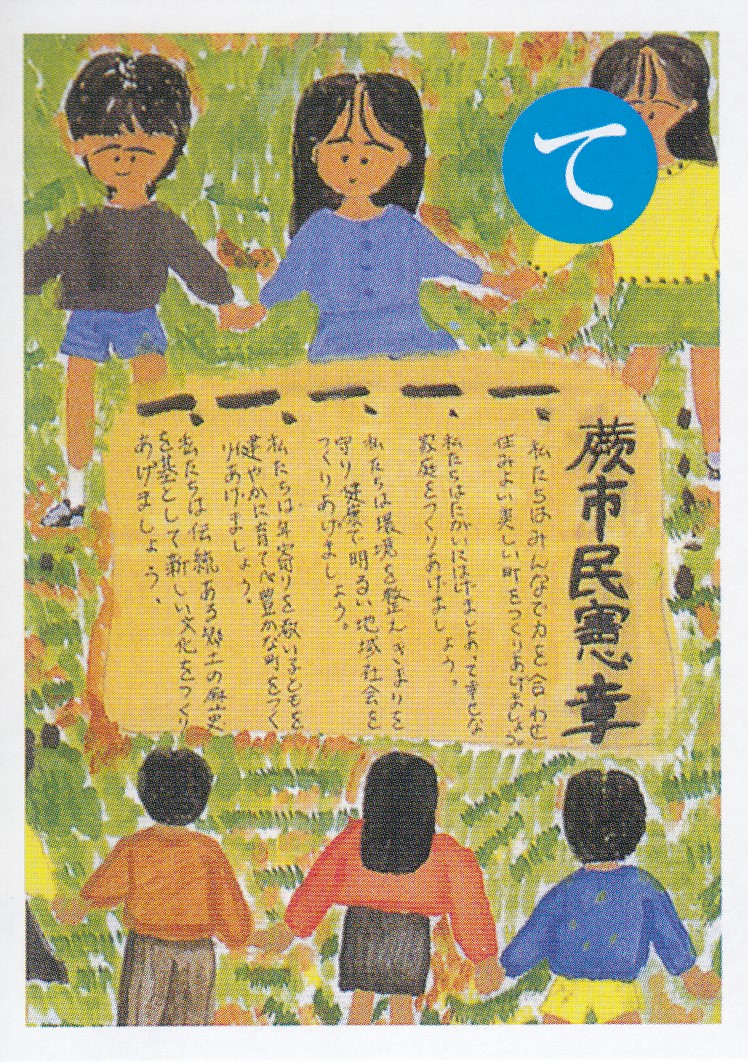 て
蕨市民憲章
一、私たちはみんなで力を合わせ
住みよい美しい町をつくりあげましょう。
一、私たちはたがいにはげましあって幸せな
家庭をつくりあげましょう。
一、私たちは環境を整えきまりを
守り健康で明るい地域社会を
つくりあげましょう。
一、私たちは年寄りを敬い子どもを
健やかに育て心豊かな町をつく
りあげましょう。
一、私たちは伝統ある郷土の歴史
を基として新しい文化をつくり
あげましょう、